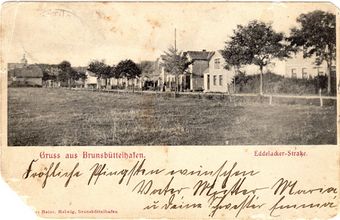 Gruss aus Brunsbüttelhafen.
Eddelacker-Straße.
Fröhliche Pfingsten wünschen
Vater Mutter Maria
u deine Schwester Emma
Heinr. Hellwig, Brunsbüttelhafen